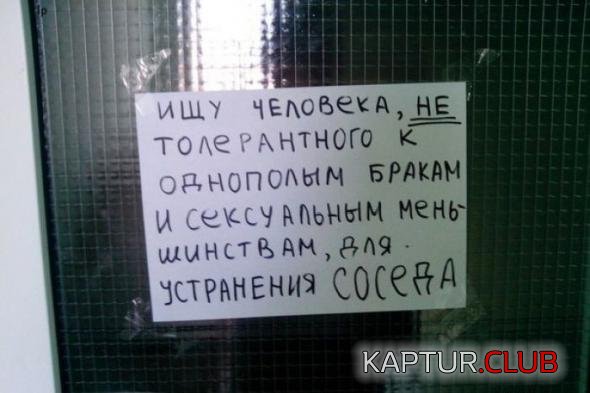 ИЩУ ЧЕЛОВЕКА, НЕ
ТОЛЕРАНТНОГО К
ОДНОПОЛЫМ БРАКАМ
И СЕКСУАЛЬНЫМ МЕНЬ-
ШИНСТВАМ, ДЛЯ
УСТРАНЕНИЯ СОСЕДА
KAPTUR.CLUB